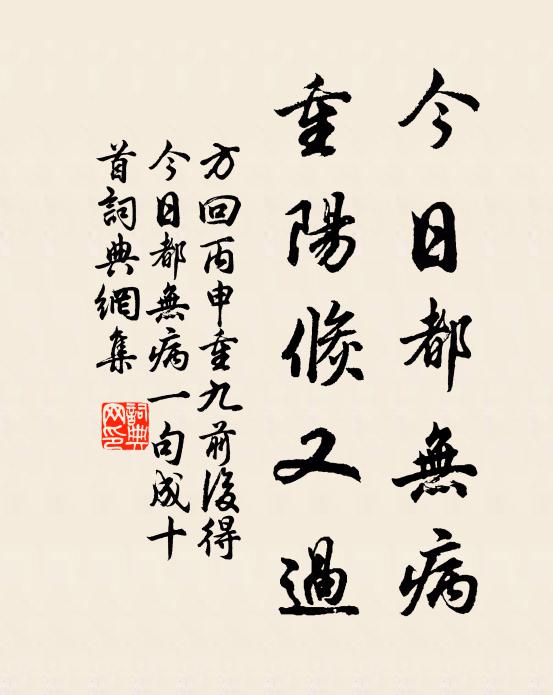 今日都無病
重陽倐又過
方回丙申重九前後得
今日都無病一句成十
首詞典網集
詞典网印